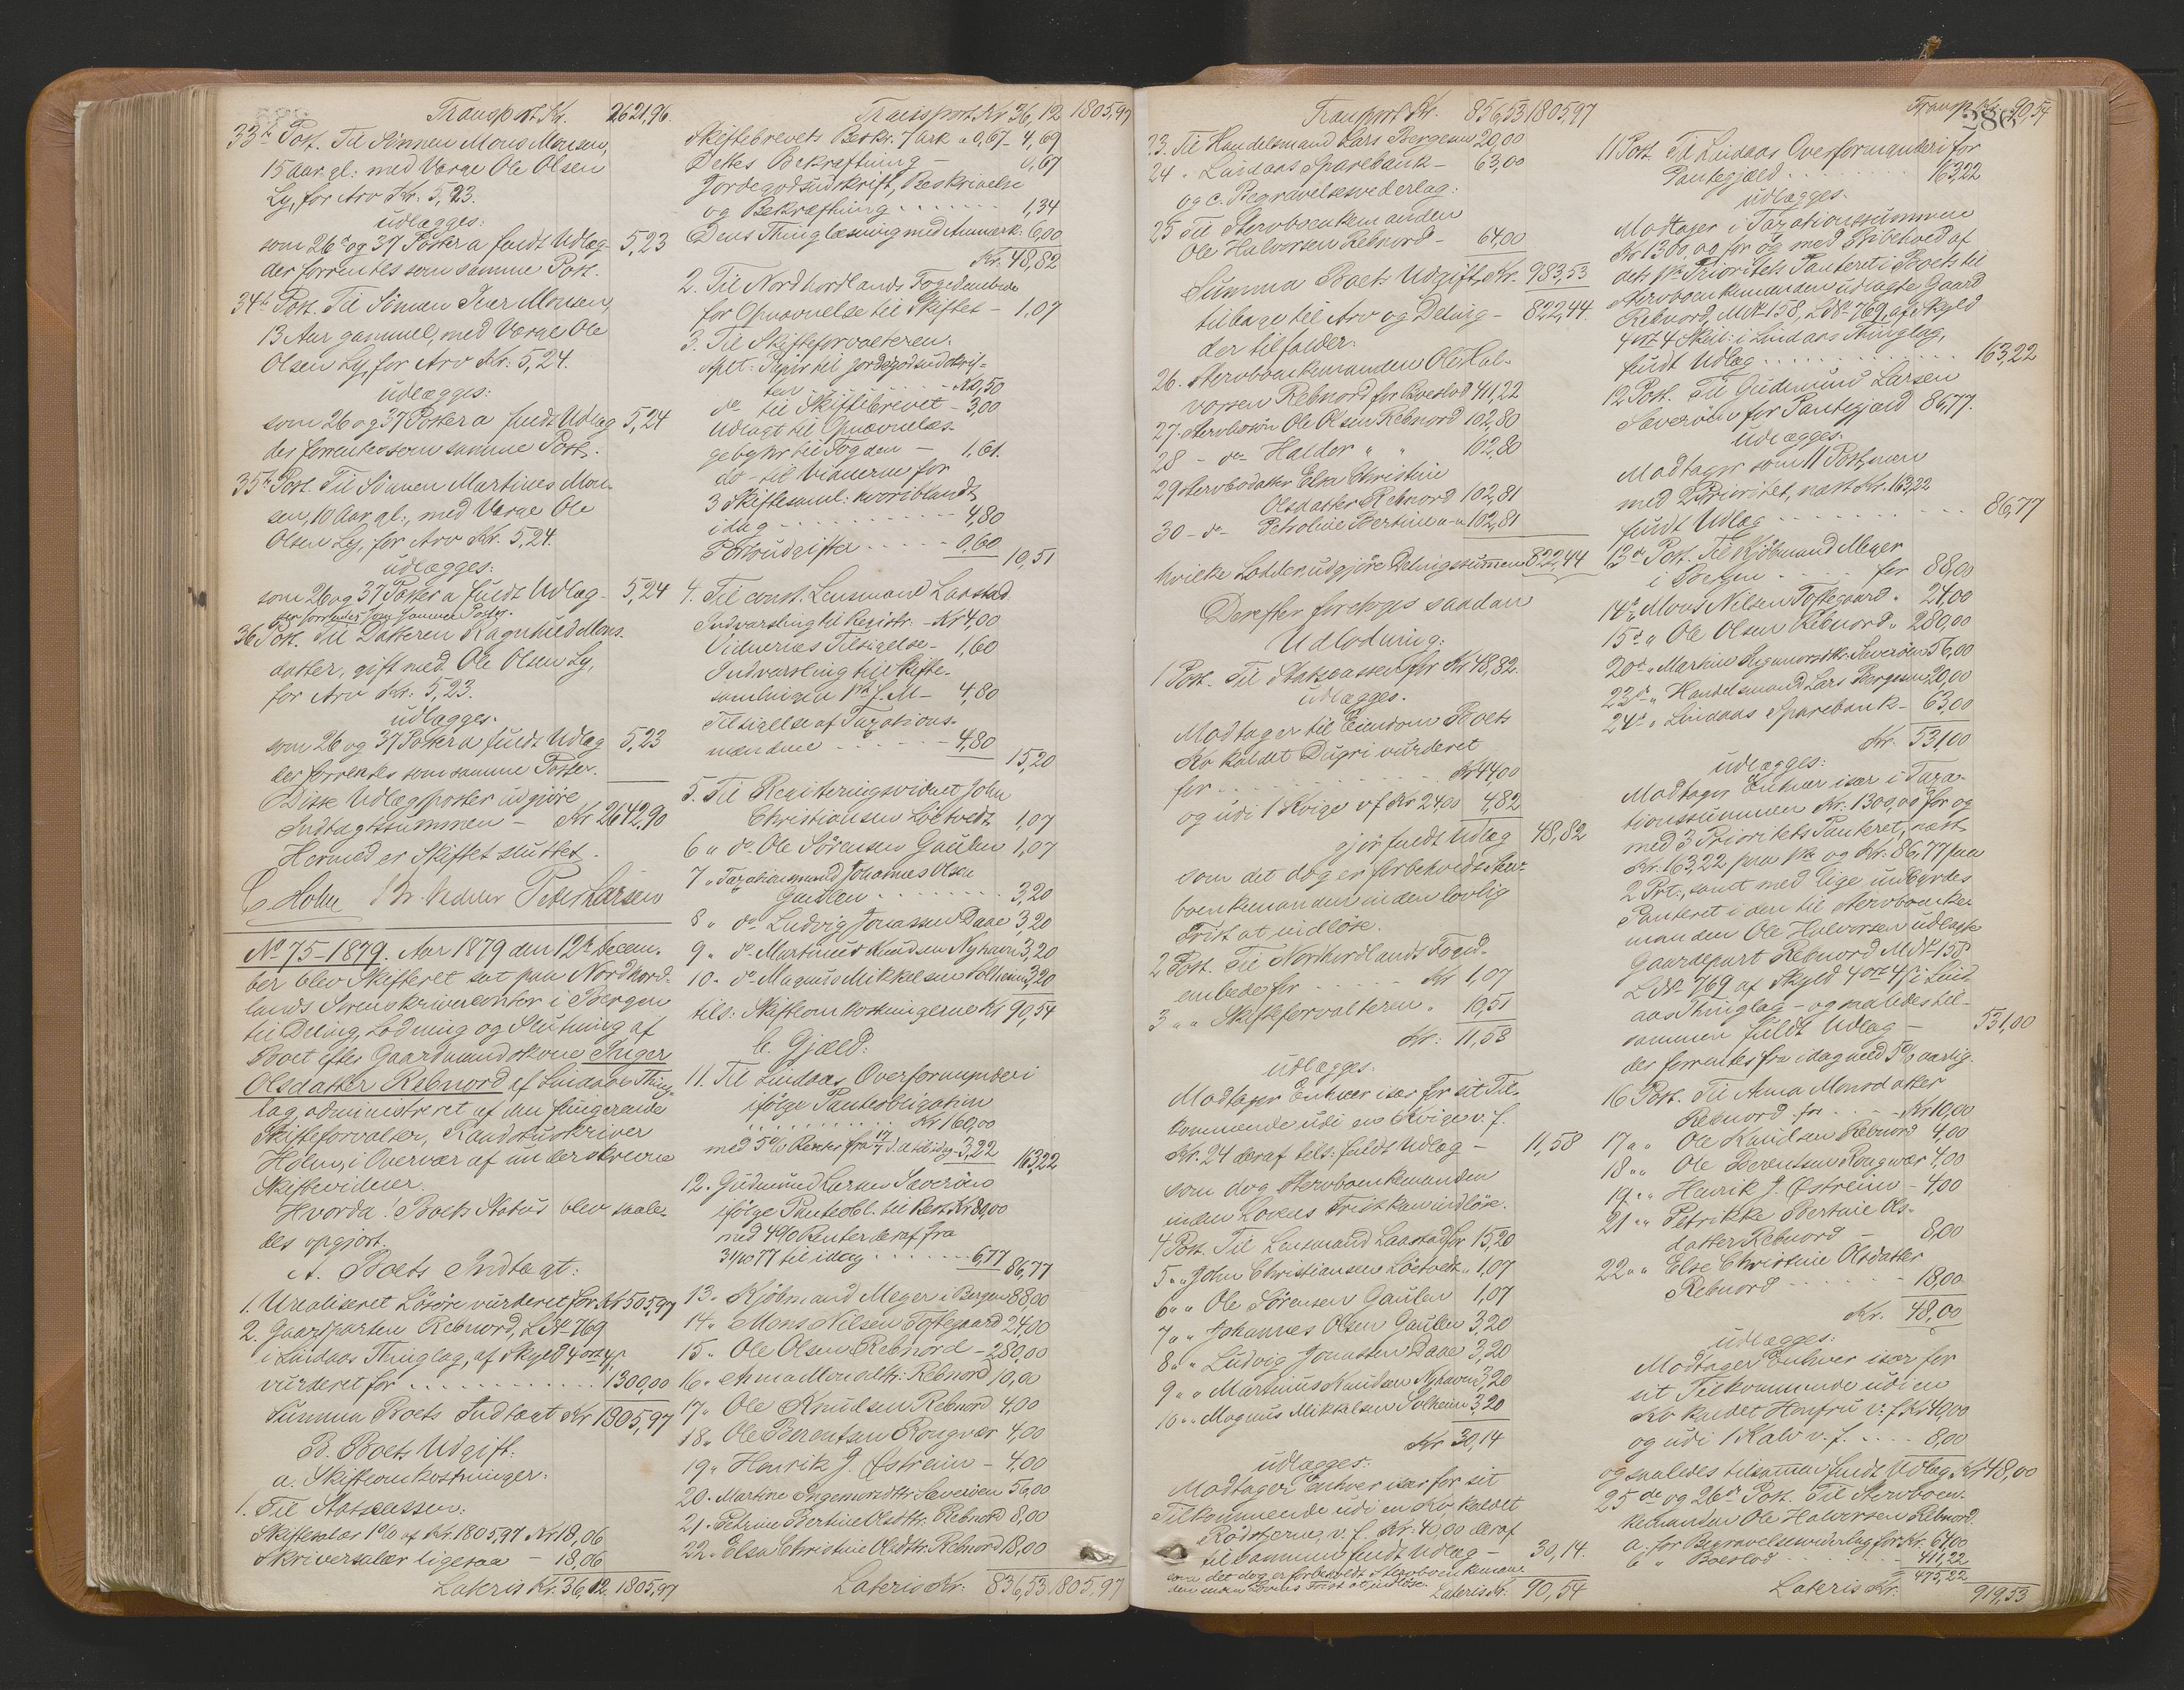 Transport Kr. 2621,96.
33te Post. Til Sønnen Mons Monsen,
15 Aar gl: med Værge Ole Olsen
Ly, for Arv Kr: 5,23.
udlægges:
som 26de og 37 Poster a fuldt Udlæg 5,23
der forrentes som samme Post.
34te Post. Til Sønnen Iver Monsen,
13 Aar gammel, med Værge Ole
Olsen Ly, for Arv Kr: 5,24.
udlægges:
som 26 og 37 Poster a fuldt Udlæg 5,24
der forrentes som samme Post.
35te Post. Til Sønnen Martines Mon-
sen, 10 Aar gl:, med Værge Ole
Olsen Ly, for Arv Kr. 5,24.
udlægges:
som 26 og 37 Poster a fuldt Udlæg 5,24
der forrentes som samme Poster.
36 Post. Til Datteren Ragnhild Mons-
datter, gift med Ole Olsen Ly,
for Arv Kr: 5,23.
udlægges.
som 26 og 37 Poster a fuldt Udlæg 5,23
der forrentes som samme Poster.
Disse Udlægsposter udgjøre
Indtægtssummen - Kr 2642,90
Hermed er Skiftet sluttet.
C. Holm Peter Larsen
No 75-1879. Aar 1879 den 12te Decem-
ber blev Skifteret sat paa Nordhord-
lands Sorenskrivercontor i Bergen
til Deling, Lodning og Slutning af
Boet efter Gaardmandskone Inger
Olsdatter Rebnord af Lindaas Thing-
lag, administreret af den fungerende
Skifteforvalter, Raadstuskriver
Holm, i Overvær af underskrevne
Skiftevidner.
Hvorda! Boets Status blev saale-
des opgjort.
A. Boets Indtægt:
1. Urealiseret Løsøre vurderet for Kr 505,97
2. Gaardparten Rebnord, LNo 769
i Lindaas Thinglag, af Skyld 4 ort 4 ſ
vurderet for . . . . 1300,00
Summa Boets Indtægt Kr 1805,97
B. Boets Udgift:
a. Skifteomkostninger:
1. Til Statscassen:
Skiftesalær 1% af Kr. 1805,97 Kr 18,06
Skriversalær ligesaa - 18,06
Lateris Kr. 36,12. 1805,97
Transport Kr 36,12 1805,97
Skiftebrevets Beskr. 7 Ark a 0,67 - 4,69
Dettes Bekræftning - 0,67
Jordegodsudskrift, Beskrivelse
og Bekræftning . . . . 1,34
Dens Thinglæsning med Anmærk: 6,00
Kr. 48,82
2. Til Nordhordlands Fogedembede
for Opnævnelse til Skiftet - 1,07
3. Til Skifteforvalteren:
Stpl: Papir til Jordegodsudskrif-
ten . . . . Kr 0,50
do til Skiftebrevet - 3,00
Udlagt til Opnævnelses-
gebyhr til Fogden - 1,61.
do - til Vidnerne for
3 Skiftesaml: hvoriblandt
idag . . . . 4,80
Portoudgifter . . . . 0,60 10,51
4. Til const. Lensmand Laastad
Indvarsling til Registr: - Kr 4,00
Vidnernes Tilsigelse - 1,60
Indvarsling til Skifte-
samlingen 4,80
Tilsigelse af Taxations-
mændene . . . . 4,80 15,20
5. Til Registreringsvidnet John
Christiansen Løtvedt 1,07
6 " do. Ole Sørensen Gaulen 1,07
7 " Taxationsmand Johannes Olsen
Gaulen . . . . 3,20
8 " do Ludvig Jonassen Daae 3,20
9 " do Martinus Knudsen Nyhavn 3,20
10 " do Magnus Mikkelsen Solheim 3,20
tils: Skifteomkostningerne Kr 90,54
b. Gjæld:
11. Til Lindaas Overformynderi
ifølge Panteobligation
. . . . Kr 160,00
med 5% Renter fra 17/7 d.a. til idag 3,22 163,22
12. Gudmund Larsen Severøen
ifølge Panteobl. til Rest Kr 80,00
med 4% Renter deraf fra
31/10 77 til idag . . . . 6,77 86,77
13. Kjøbmand Meyer i Bergen 88,00
14 " Mons Nilsen Toftegaard 24,00
15 " Ole Olsen Rebnord - 280,00
16 " Anna Monsdtr: Rebnord 10,00
17 " Ole Knudsen Rebnord 4,00
18 " Ole Berentsen Rongvær 4,00
19 " Henrik J. Østreim - 4,00
20. Martine Ingemorsdtr Severøen 56,00
21 " Petrine Bertine Olsdtr. Rebnord 8,00
22. Elsa Christine Olsdtr. Rebnord 18,00
Lateris Kr: 836,53 1805,97
Transport Kr. 836,53 1805,97
23. Til Handelsmand Lars Bergesen 20,00
24 " Lindaas Sparebank - 63,00
og c. Begravelsesvederlag:
25 Til Stervboenkemanden
Ole Halvorsen Rebnord - 64,00
Summa Boets Udgift Kr. 983,53
tilbage til Arv og Deling - 822,44.
der tilfalder:
26. Stervboenkemanden Ole Hal-
vorsen Rebnord for Boeslod 411,22
27. Stervbosøn Ole Olsen Rebnord 102,80
28 - do Haldor " " 102,80
29 Stervbodatter Elsa Christine
Olsdatter Rebnord 102,81
30 - do Petroline Bertine - " - 102,81
hvilke Lodder udgjøre Delingssummen 822,44
Derefter foretoges saadan
Udlodning:
1 Post. Til Statscassen for Kr 48,82.
udlægges.
Modtager til Eiendom Boets
Ko kaldet Dugri vurderet
for . . . . Kr 44,00
og udi 1 Kvige v.f. Kr 24,00 4,82
gjør fuldt Udlæg 48,82
som det dog er forbeholdt Sterv-
boenkemanden inden lovlig
Frist at indløse.
2 Post. Til Nordhordlands Foged-
embede for . . . . Kr 1,07
3 " " Skifteforvalteren. 10,51
Kr: 11,58
udlægges.
Modtager Enhver især for sit Til-
kommende udi en Kvige v. f.
Kr. 24 deraf tils: fuldt Udlæg - 11,58
som dog Stervboenkemanden
inden Lovens Frist kan indløse.
4 Post. Til Lensmand Laastad for 15,20
5 " " John Christiansen Løtvedt " 1,07
6 " " Ole Sørensen Gaulen 1,07
7 " " Johannes Olsen Gaulen 3,20
8 " " Ludvig Jonassen Daae 3,20
9 " " Martinus Knudsen Nyhavn 3,20
10 " " Magnus Mikkelsen Solheim 3,20
Kr 30,14
udlægges:
Modtager Enhver især for sit
Tilkommende udi en Ko kaldet
Rødstjerne, v. f. Kr: 40,00 deraf
tilsammen fuldt Udlæg - 30,14.
som det dog er forbeholdt Stervboenkeman-
den inden Lovens Frist at indløse.
Lateris Kr. 90,54
386
Transp. Kr. 90,54
11 Post. Til Lindaas Overformynderi for
Pantegjæld . . . . 163,22
udlægges.
Modtager i Taxationssummen
Kr 1300,00 for og med Bibehold af
dets 1ste Prioritets Panteret i Boets til
Stervboenkemanden udlagte Gaard
Rebnord, MNo 158, LNo 769, af Skyld
4 ort 4 Skill: i Lindaas Thinglag,
fuldt Udlæg . . . . 163,22
12 Post. Til Gudmund Larsen
Severøen for Pantegjæld 86,77.
udlægges.
Modtager som 11 Post, men
med 2 Prioritet, næst Kr. 163,22
fuldt Udlæg . . . . 86,77
13de Post. Til Kjøbmand Meyer
i Bergen . . . . for 88,00
14de " Mons Nilsen Toftegaard " 24,00
15de " Ole Olsen Rebnord " 280,00
20de " Martine Ingemorsdtr. Severøen 56,00
23de " Handelsmand Lars Bergesen 20,00
24de " Lindaas Sparebank - 63,00
Kr. 531,00
udlægges:
Modtager Enhver især i Taxa-
tionssummen Kr: 1300,00 for og
med 3 Prioritets Panteret, næst
Kr. 163,22 paa 1ste og Kr: 86,77 paa
2 Prt., samt med lige indbyrdes
Panteret i den til Stervboenke-
manden Ole Halvorsen udlagte
Gaardepart Rebnord MNo 158
LNo 769 af Skyld 4 ort 4 ſ i Lind-
aas Thinglag - og saaledes til-
sammen fuldt Udlæg - 531,00
der forrentes fra idag med 5% aarlig.
16 Post. Til Anna Monsdatter
Rebnord for . . . . Kr 10,00
17 " " Ole Knudsen Rebnord 4,00
18 " " Ole Berentsen Rongvær 4,00
19 " " Henrik J. Østreim - 4,00
21 " " Petrikke Bertine Ols-
datter Rebnord - 8,00
22 " " Else Christine Olsdatter
Rebnord . . . . 18,00
Kr. 48,00
udlægges:
Modtager Enhver især for
sit Tilkommende udi en
Ko kaldet Honfru v: f. Kr 40,00
og udi 1 Kalv v. f. . . . . 8,00
og saaledes tilsammen fuldt Udlæg Kr 48,00
25de og 26de Post. Til Stervboen-
kemanden Ole Halvorsen Rebnord.
a. for Begravelsesvederlag for Kr. 64,00
b " Boeslod . . . . 411,22
475,22
Lateris Kr. 919,53